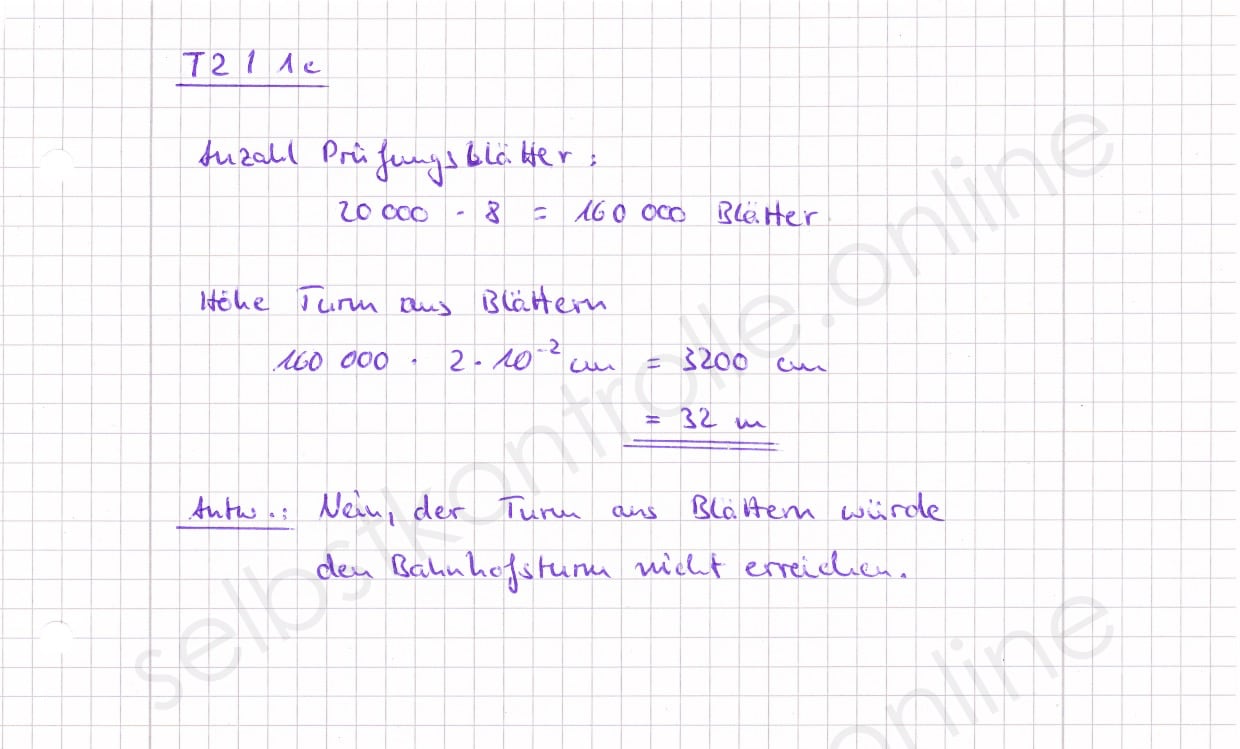 T2 / 1c
Anzahl Prüfungsblätter:
20 000 · 8 = 160 000 Blätter
Höhe Turm aus Blättern
160 000 · 2 · 10⁻² cm = 3200 cm
= 32 m
Antw.: Nein, der Turm aus Blättern würde
den Bahnhofsturm nicht erreichen.
selbstkontrolle.online
online